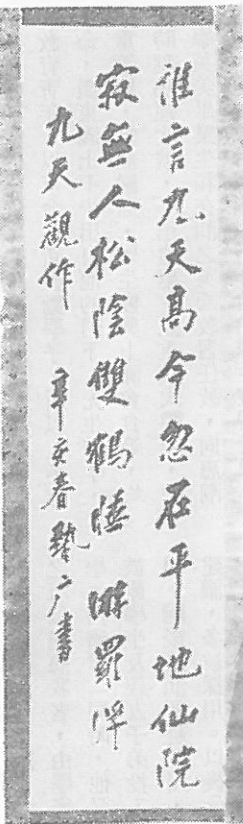 誰言九天高今忽在平地仙院
寂無人松陰雙鶴睡 游羅浮
九天觀作 辛亥春䜣广書